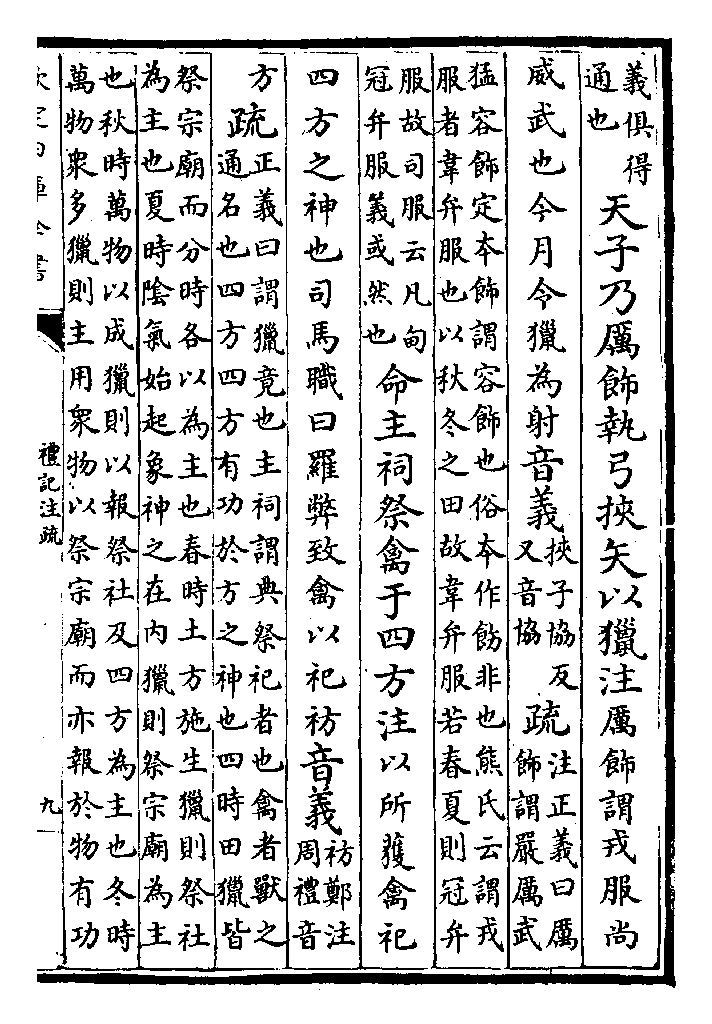 義俱得
通也
天子乃厲飾執弓挾矢以獵注厲飾謂戎服尚
威武也今月令獵為射音義
挾子協反
又音協
疏
注正義曰厲
飾謂嚴厲武
猛容飾定本飾謂容飾也俗本作飭非也熊氏云謂戎
服者韋弁服也以秋冬之田故韋弁服若春夏則冠弁
服故司服云凡甸
冠弁服義或然也
命主祠祭禽于四方注以所獲禽祀
四方之神也司馬職曰羅弊致禽以祀祊音義
祊鄭注
周禮音
方
疏
正義曰謂獵竟也主祠謂典祭祀者也禽者獸之
通名也四方四方有功於方之神也四時田獵皆
祭宗廟而分時各以為主也春時土方施生獵則祭社
為主也夏時陰氣始起象神之在内獵則祭宗廟為主
也秋時萬物以成獵則以報祭社及四方為主也冬時
萬物衆多獵則主用衆物以祭宗廟而亦報於物有功
欽定四庫全書
禮記注疏
九